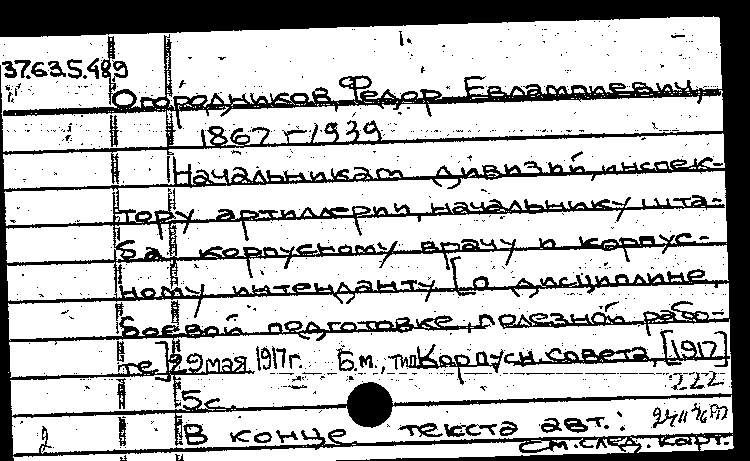 1.
37.63.5.489
Огородников, Федор Евлампиевич,
1867 – 1939
Начальникам дивизий, инспек-
тору артиллерии, начальнику шта-
ба, корпусному врачу и корпус-
ному интенданту [о дисциплине,
боевой подготовке, полезной рабо-
те] 29 мая 1917 г. Б.м., тип. Корпусн. совета, [1917]
222
5 с.
В конце текста авт.:
2
См. след. карт.